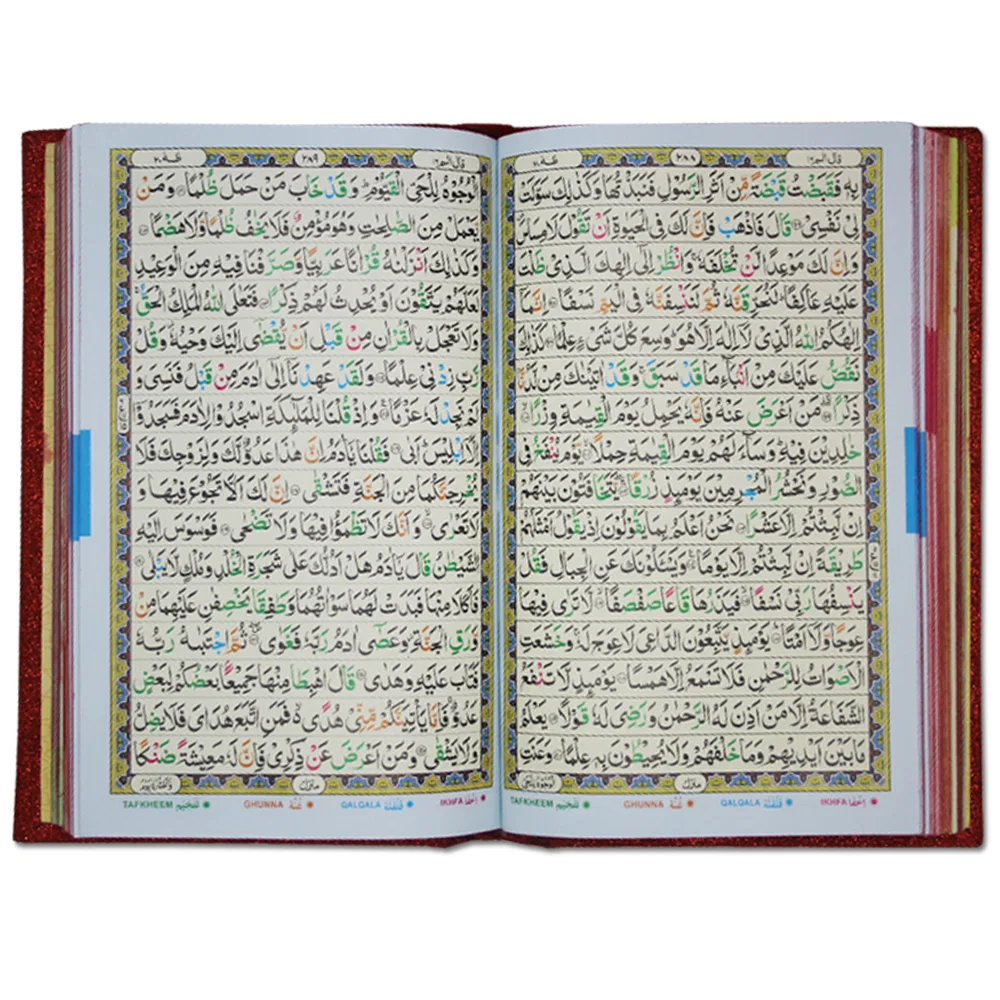 قال الم ١٦ ٢٨٨ طٰهٰ ٢٠
بِهٖ فَقَبَضْتُ قَبْضَةً مِّنْ اَثَرِ الرَّسُوْلِ فَنَبَذْتُهَا وَكَذٰلِكَ سَوَّلَتْ
لِیْ نَفْسِیْ ۝ قَالَ فَاذْهَبْ فَاِنَّ لَكَ فِی الْحَیٰوةِ اَنْ تَقُوْلَ لَا مِسَاسَ
وَاِنَّ لَكَ مَوْعِدًا لَّنْ تُخْلَفَهٗ ۚ وَانْظُرْ اِلٰۤی اِلٰهِكَ الَّذِیْ ظَلْتَ
عَلَیْهِ عَاكِفًا ؕ لَنُحَرِّقَنَّهٗ ثُمَّ لَنَنْسِفَنَّهٗ فِی الْیَمِّ نَسْفًا ۝ اِنَّمَاۤ
اِلٰهُكُمُ اللّٰهُ الَّذِیْ لَاۤ اِلٰهَ اِلَّا هُوَ ؕ وَسِعَ كُلَّ شَیْءٍ عِلْمًا ۝ كَذٰلِكَ
نَقُصُّ عَلَیْكَ مِنْ اَنْۢبَآءِ مَا قَدْ سَبَقَ ۚ وَقَدْ اٰتَیْنٰكَ مِنْ لَّدُنَّا
ذِكْرًا ۝ مَنْ اَعْرَضَ عَنْهُ فَاِنَّهٗ یَحْمِلُ یَوْمَ الْقِیٰمَةِ وِزْرًا ۝
خٰلِدِیْنَ فِیْهِ ؕ وَسَآءَ لَهُمْ یَوْمَ الْقِیٰمَةِ حِمْلًا ۝ یَّوْمَ یُنْفَخُ فِی
الصُّوْرِ وَنَحْشُرُ الْمُجْرِمِیْنَ یَوْمَىِٕذٍ زُرْقًا ۝ یَّتَخَافَتُوْنَ بَیْنَهُمْ
اِنْ لَّبِثْتُمْ اِلَّا عَشْرًا ۝ نَحْنُ اَعْلَمُ بِمَا یَقُوْلُوْنَ اِذْ یَقُوْلُ اَمْثَلُهُمْ
طَرِیْقَةً اِنْ لَّبِثْتُمْ اِلَّا یَوْمًا ۝ وَیَسْـَٔلُوْنَكَ عَنِ الْجِبَالِ فَقُلْ
یَنْسِفُهَا رَبِّیْ نَسْفًا ۝ فَیَذَرُهَا قَاعًا صَفْصَفًا ۝ لَّا تَرٰی فِیْهَا
عِوَجًا وَّلَاۤ اَمْتًا ۝ یَوْمَىِٕذٍ یَّتَّبِعُوْنَ الدَّاعِیَ لَا عِوَجَ لَهٗ ۚ وَخَشَعَتِ
الْاَصْوَاتُ لِلرَّحْمٰنِ فَلَا تَسْمَعُ اِلَّا هَمْسًا ۝ یَوْمَىِٕذٍ لَّا تَنْفَعُ
الشَّفَاعَةُ اِلَّا مَنْ اَذِنَ لَهُ الرَّحْمٰنُ وَرَضِیَ لَهٗ قَوْلًا ۝ یَعْلَمُ
مَا بَیْنَ اَیْدِیْهِمْ وَمَا خَلْفَهُمْ وَلَا یُحِیْطُوْنَ بِهٖ عِلْمًا ۝ وَعَنَتِ
منزل
IKHFA اِخفَا QALQALA قَلقَلَه GHUNNA غُنَّه TAFKHEEM تَفخِیم
قال الم ١٦ ٢٨٩ طٰهٰ ٢٠
الْوُجُوْهُ لِلْحَیِّ الْقَیُّوْمِ ؕ وَقَدْ خَابَ مَنْ حَمَلَ ظُلْمًا ۝ وَمَنْ
یَّعْمَلْ مِنَ الصّٰلِحٰتِ وَهُوَ مُؤْمِنٌ فَلَا یَخٰفُ ظُلْمًا وَّلَا هَضْمًا ۝
وَكَذٰلِكَ اَنْزَلْنٰهُ قُرْاٰنًا عَرَبِیًّا وَّصَرَّفْنَا فِیْهِ مِنَ الْوَعِیْدِ
لَعَلَّهُمْ یَتَّقُوْنَ اَوْ یُحْدِثُ لَهُمْ ذِكْرًا ۝ فَتَعٰلَی اللّٰهُ الْمَلِكُ الْحَقُّ ۚ
وَلَا تَعْجَلْ بِالْقُرْاٰنِ مِنْ قَبْلِ اَنْ یُّقْضٰۤی اِلَیْكَ وَحْیُهٗ ؗ وَقُلْ
رَّبِّ زِدْنِیْ عِلْمًا ۝ وَلَقَدْ عَهِدْنَاۤ اِلٰۤی اٰدَمَ مِنْ قَبْلُ فَنَسِیَ وَ
لَمْ نَجِدْ لَهٗ عَزْمًا ۝ وَاِذْ قُلْنَا لِلْمَلٰٓىِٕكَةِ اسْجُدُوْا لِاٰدَمَ فَسَجَدُوْۤا
اِلَّاۤ اِبْلِیْسَ ؕ اَبٰی ۝ فَقُلْنَا یٰۤاٰدَمُ اِنَّ هٰذَا عَدُوٌّ لَّكَ وَلِزَوْجِكَ فَلَا
یُخْرِجَنَّكُمَا مِنَ الْجَنَّةِ فَتَشْقٰی ۝ اِنَّ لَكَ اَلَّا تَجُوْعَ فِیْهَا وَ
لَا تَعْرٰی ۝ وَاَنَّكَ لَا تَظْمَؤُا فِیْهَا وَلَا تَضْحٰی ۝ فَوَسْوَسَ اِلَیْهِ
الشَّیْطٰنُ قَالَ یٰۤاٰدَمُ هَلْ اَدُلُّكَ عَلٰی شَجَرَةِ الْخُلْدِ وَمُلْكٍ لَّا یَبْلٰی ۝
فَاَكَلَا مِنْهَا فَبَدَتْ لَهُمَا سَوْاٰتُهُمَا وَطَفِقَا یَخْصِفٰنِ عَلَیْهِمَا مِنْ
وَّرَقِ الْجَنَّةِ ؗ وَعَصٰۤی اٰدَمُ رَبَّهٗ فَغَوٰی ۝ ثُمَّ اجْتَبٰهُ رَبُّهٗ
فَتَابَ عَلَیْهِ وَهَدٰی ۝ قَالَ اهْبِطَا مِنْهَا جَمِیْعًۢا بَعْضُكُمْ لِبَعْضٍ
عَدُوٌّ ۚ فَاِمَّا یَاْتِیَنَّكُمْ مِّنِّیْ هُدًی ۙ فَمَنِ اتَّبَعَ هُدَایَ فَلَا یَضِلُّ
وَلَا یَشْقٰی ۝ وَمَنْ اَعْرَضَ عَنْ ذِكْرِیْ فَاِنَّ لَهٗ مَعِیْشَةً ضَنْكًا
منزل
IKHFA اِخفَا QALQALA قَلقَلَه GHUNNA غُنَّه TAFKHEEM تَفخِیم